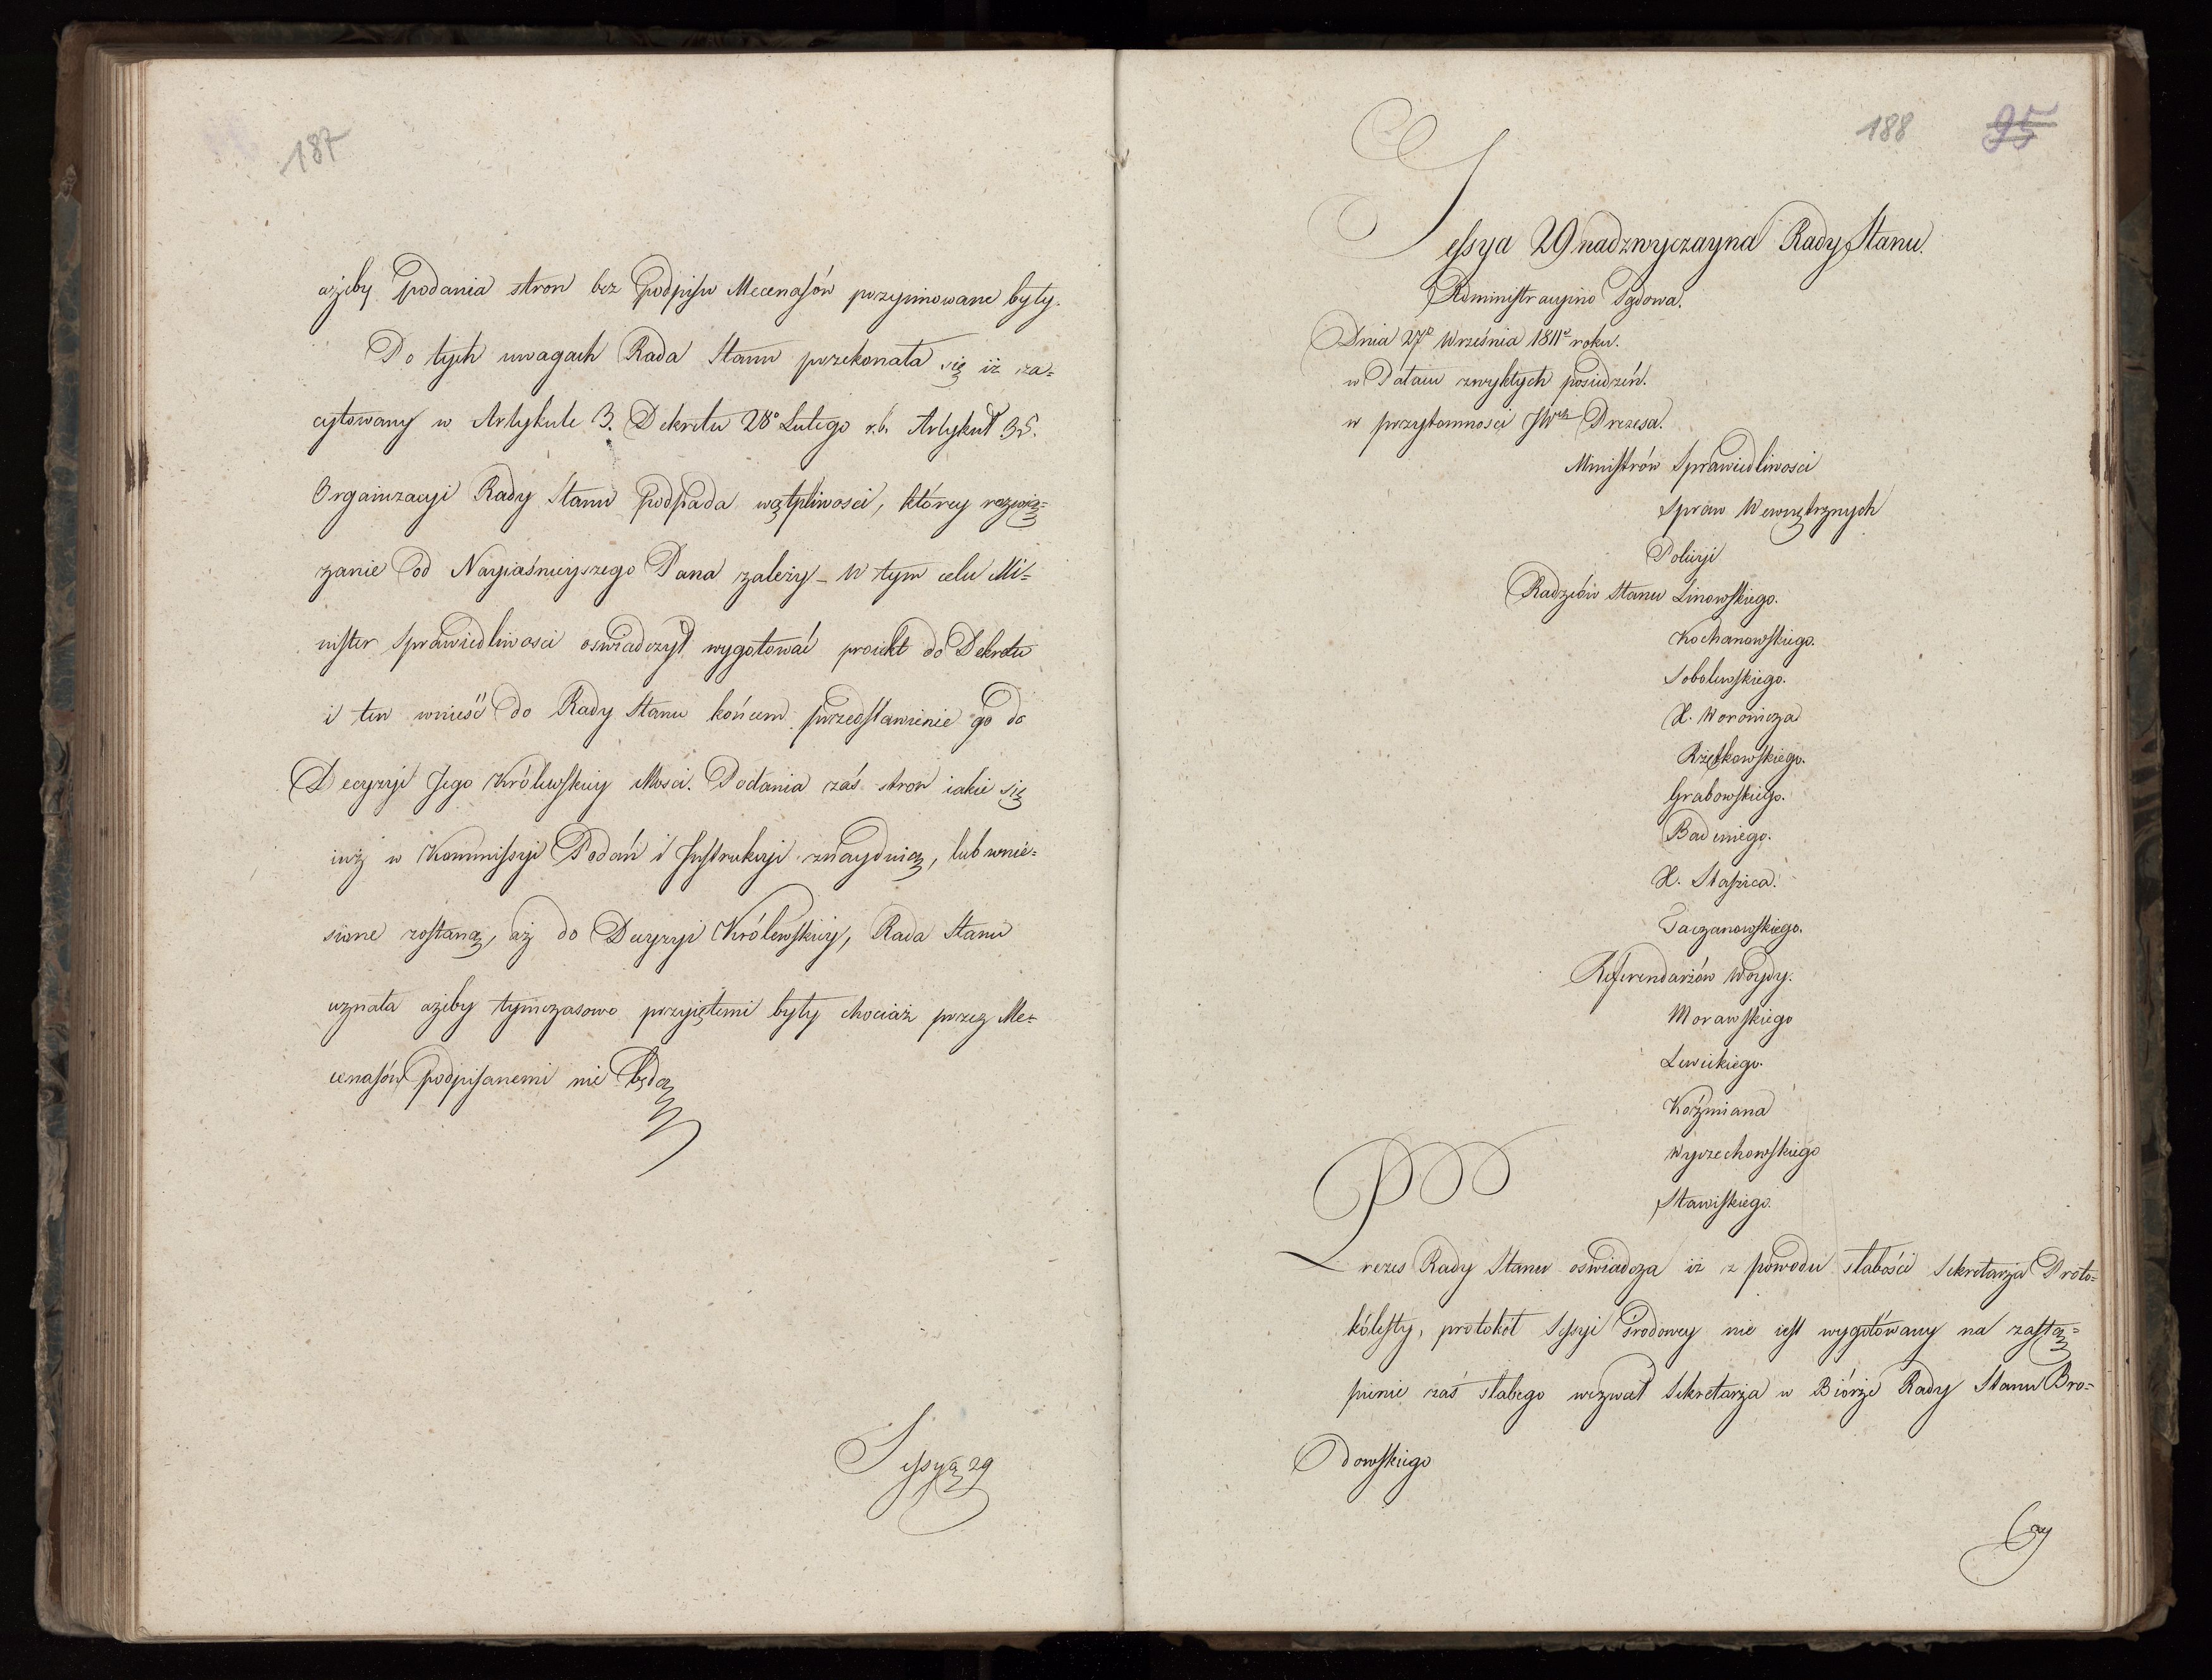 187
ażeby podania stron bez podpisu Mecenasów przyimowane były.
Po tych uwagach Rada Stanu przekonała się iż za=
cytowany w Artykule 3. Dekretu 28° Lutego r.b. Artykuł 35.
Organizacyi Rady Stanu podpada wątpliwości, którey rozwią=
zanie od Nayiaśnieyszego Pana zależy – W tym celu Mi=
nister Sprawiedliwości oświadczył wygotować proiekt do Dekretu
i ten wnieść do Rady Stanu końcem przedstawienie go do
Decyzyi Jego Królewskiey Mości. Podania zaś stron iakie się
iuż w Kommissyi Podań i Instrukcyi znayduią, lub wnie=
sione zostaną, aż do Decyzyi Królewskiey, Rada Stanu
uznała ażeby tymczasowo przyiętemi były chociaż przez Me=
cenasów podpisanemi nie będą
Sessya 29
188 95
Sessya 29 nadzwyczayna Rady Stanu.
Administracyino Sądowa.
Dnia 27° Września 1811° roku.
w Pałacu zwykłych posiedzeń.
w przytomności JWch Prezesa.
Ministrów Sprawiedliwości
Spraw Wewnętrznych
Policyi
Radzców Stanu Linowskiego.
Kochanowskiego.
Sobolewskiego.
X. Woronicza
Rzętkowskiego.
Grabowskiego.
Badeniego.
X. Staszica.
Taczanowskiego.
Referendarzów Woydy.
Morawskiego
Lewickiego.
Koźmiana
Wyczechowskiego
Stawiskiego.
Prezes Rady Stanu oświadcza iż z powodu słabości Sekretarza Proto=
kólisty, protokół Sessyi Srodowey nie iest wygotowany na zastą=
pienie zaś słabego wezwał Sekretarza w Biórze Rady Stanu Bro=
dowskiego